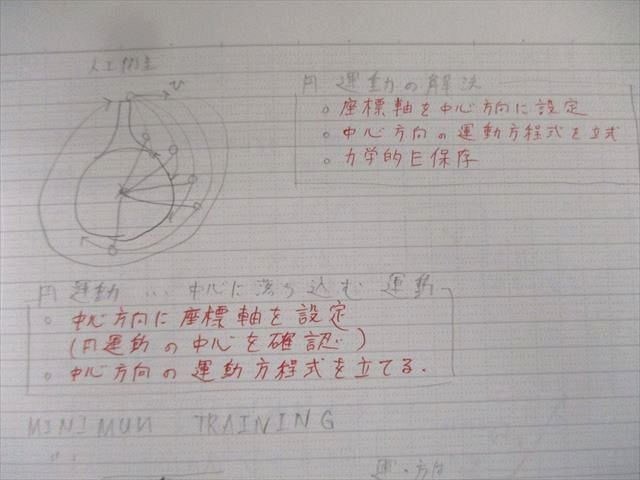 人工衛星
v
円運動の解法
○ 座標軸を中心方向に設定
○ 中心方向の運動方程式を立式
○ 力学的E保存
円運動 … 中心に落ち込む運動
○ 中心方向に座標軸を設定
(円運動の中心を確認‥)
○ 中心方向の運動方程式を立てる.
MINIMUN TRAINING
運・方は